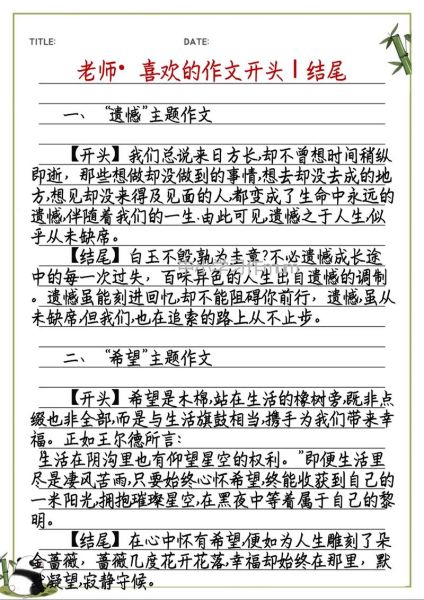 TITLE: DATE:
老师·喜欢的作文开头|结尾
一、“遗憾”主题作文
【开头】我们总说来日方长,却不曾想时间稍纵
即逝,那些想做却没做到的事情,想去却没去成的地
方,想见却没来得及见面的人,都变成了生命中永远的
遗憾,伴随着我们的一生.由此可见,遗憾之于人生,似
乎从未缺席。
【结尾】白玉不毁,孰为圭章?不必遗憾成长途
中的每一次过失,百味异色的人生出自遗憾的调制
。遗憾虽能刻进回忆,却不能阻碍你前行,遗憾,虽从
未缺席,但我们,也在追索的路上从不止步。
二、“希望”主题作文
【开头】希望是木棉,站在生活的橡树旁,既非点
缀也非全部,而是与生活旗鼓相当,携手为我们带来幸
福。正如王尔德所言:
生活在阴沟里也有仰望星空的权利。”即便生活里
尽是凄风苦雨,只要始终心怀希望,终能收获到自己的
一米阳光,拥抱璀璨星空,在黑夜中等着属于自己的黎
明。
【结尾】在心中怀有希望,便如为人生雕刻了朵
金蔷薇,蔷薇几度花开花落,幸福却始终在那里,默
默凝望,寂静守候。